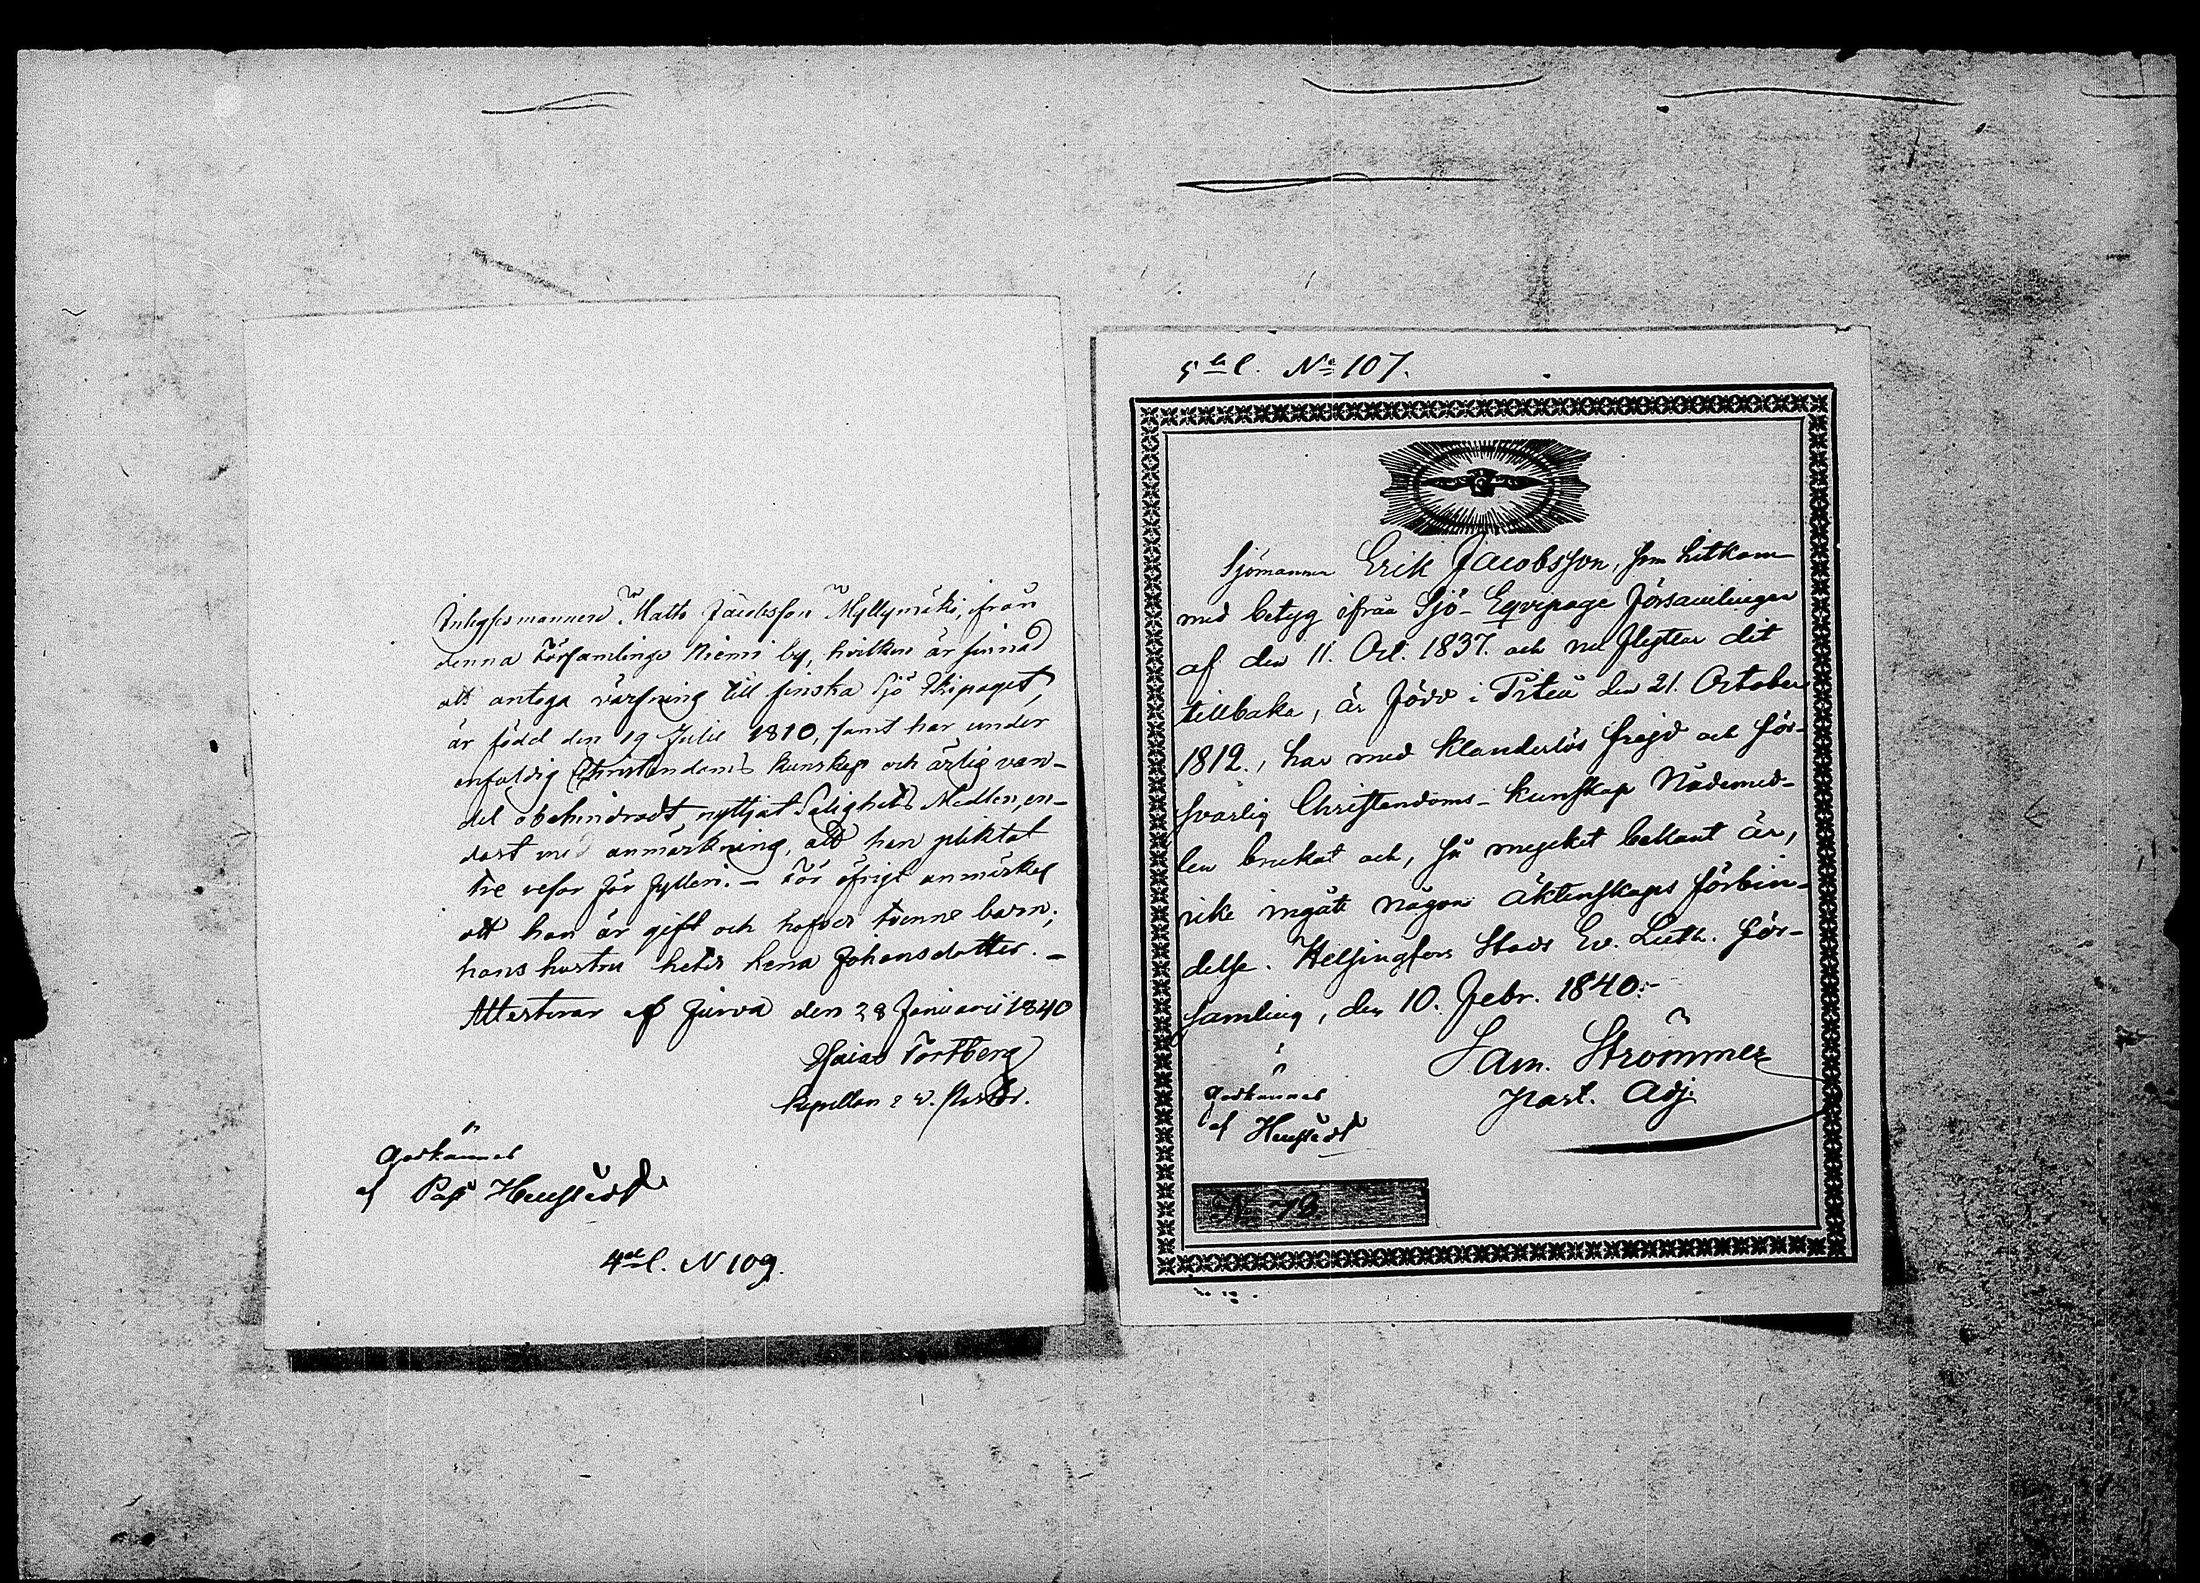 Inhysesmannen Matts Jacobsson Myllymäki, ifrån
denna Församlings Niemi by, hvilken är sinnad
att antaga värfning till finska Sjö Ekipaget,
är född den 19 Julii 1810, samt har under
enfaldig Christendoms kunskap och ärlig van-
del obehindradt nyttjat Salighets Medlen, en-
dast med anmärkning, att han pliktat
tre resor för fylleri. – För öfrigt anmärkes
att han är gift och hafver tvenne barn;
hans hustru heter Lena Johansdotter. –
Attesterar af Jurva den 28 Januarii 1840
Esaias Fortberg
Kapellan v. Pastor.
Godkännes
af Past
4de C. N 109.
5te C. No 107.
Sjömannen Erik Jacobsson, som hitkom
med betyg ifrån Sjö-Eqvipage Församlingen
af den 11. Oct. 1837. och nu flyttar dit
tillbaka, är född i Piteå den 21. October
1812., har med klanderlös frejd och för-
svarlig Christendoms-kunskap Nådemed-
len brukat och, så mycket bekant är,
icke ingått någon äktenskaps förbin-
delse. Helsingfors Stads Ev. Luth. För-
samling, den 10. Febr. 1840.–
Sam. Strömmer
Past. Adj.
Godkännes
af
N 78